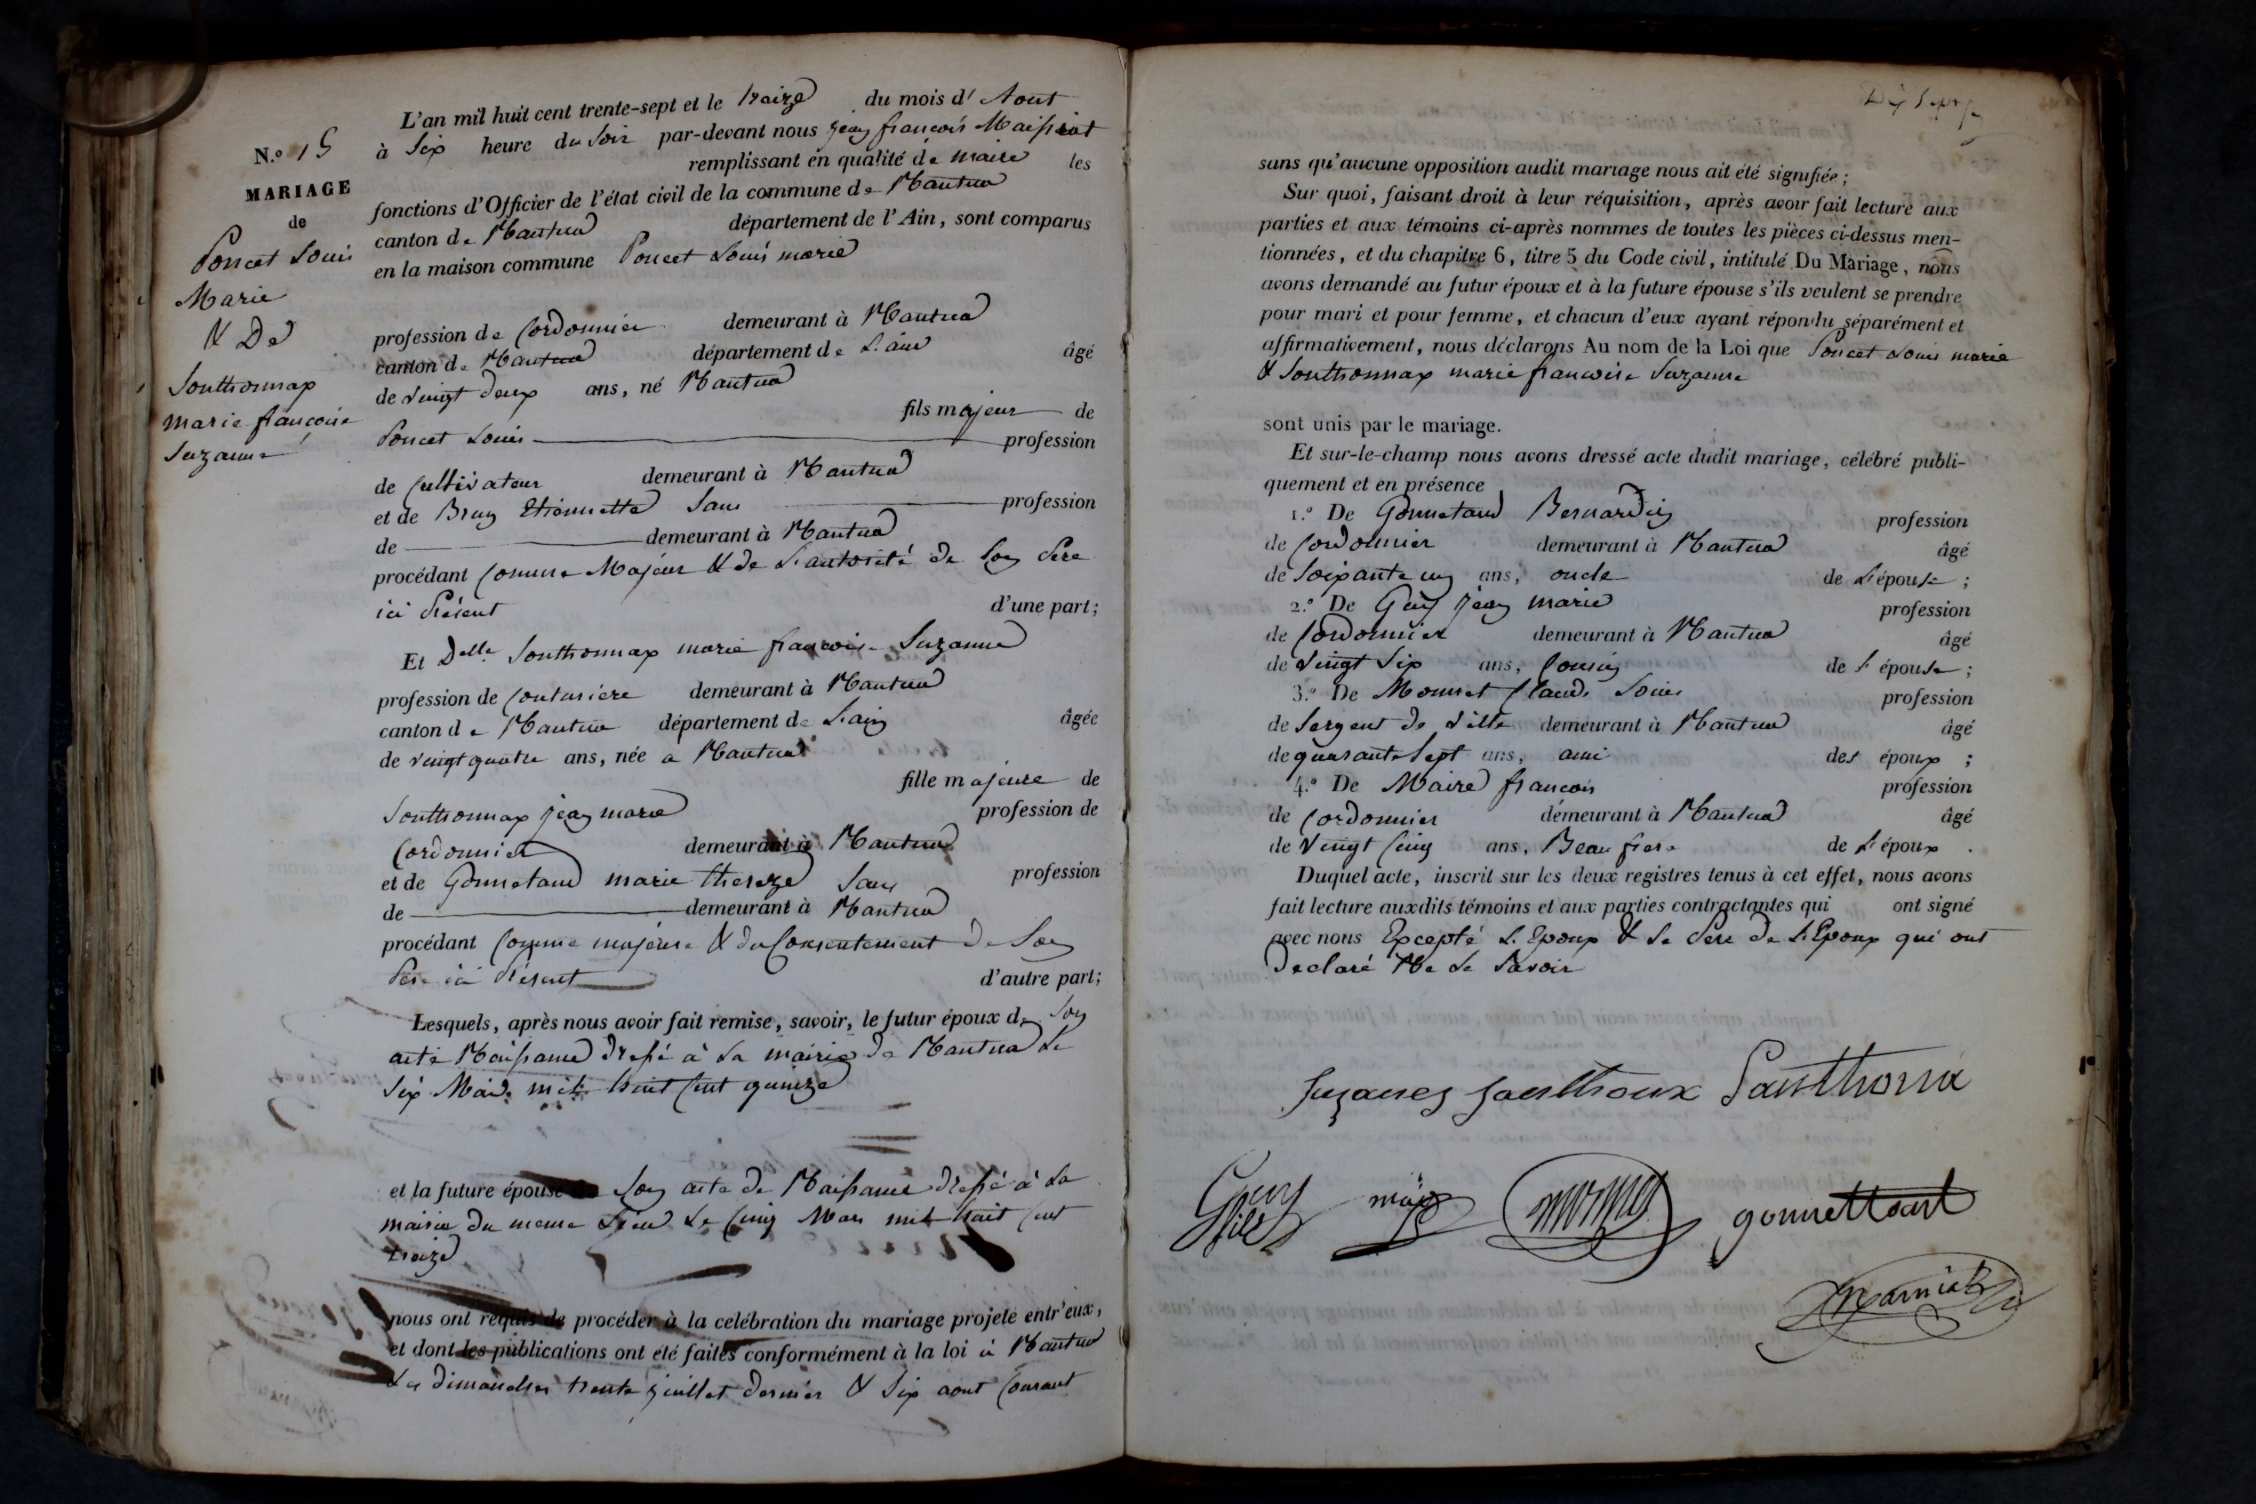 N.º 15
MARIAGE
de
Poncet Louis
Marie
& De
Southonnax
marie françoise
Suzanne
L'an mil huit cent trente-sept et le traize du mois d' Aout
à Six heure du Soir par-devant nous jean françois Maissiat
remplissant en qualité de maire les
fonctions d'Officier de l'état civil de la commune de Nantua
canton de Nantua département de l'Ain, sont comparus
en la maison commune Poncet Louis marie
profession de Cordonnier demeurant à Nantua
canton de Nantua département de L'ain âgé
de vingt deux ans, né Nantua
fils majeur de
Poncet Louis profession
de Cultivateur demeurant à Nantua
et de Brun Etiennette Sans profession
de demeurant à Nantua
procédant Comme Majeur & de L'autorité de Son Père
ici Présent d'une part;
Et Delle Southonnax marie françoise Suzanne
profession de Couturière demeurant à Nantua
canton de Nantua département de L'ain âgée
de vingt quatre ans, née a Nantua
fille majeure de
Southonnax jean marie profession de
Cordonnier demeurant à Nantua
et de Gonnetand marie thereze Sans profession
de demeurant à Nantua
procédant Comme majeure & du Consentement de Son
Père ici Présent d'autre part;
Lesquels, après nous avoir fait remise, savoir, le futur époux de Son
acte Naissance dressé à La mairie de Nantua Le
Six Mai mil huit Cent quinze
et la future épouse de Son acte de Naissance dressé à La
mairie du meme Lieu Le Cinq Mars mil huit Cent
traize
nous ont requis de procéder à la celébration du mariage projeté entr'eux,
et dont les publications ont été faites conformément à la loi à Nantua
Les dimanches trente juillet dernier & Six aout Courant
Dix Sept
sans qu'aucune opposition audit mariage nous ait été signifiée;
Sur quoi, faisant droit à leur réquisition, après avoir fait lecture aux
parties et aux témoins ci-après nommes de toutes les pièces ci-dessus men-
tionnées, et du chapitre 6, titre 5 du Code civil, intitulé Du Mariage, nous
avons demandé au futur époux et à la future épouse s'ils veulent se prendre
pour mari et pour femme, et chacun d'eux ayant répondu séparément et
affirmativement, nous déclarons Au nom de la Loi que Poncet Louis marie
& Southonnax marie françoise Suzanne
sont unis par le mariage.
Et sur-le-champ nous avons dressé acte dudit mariage, célébré publi-
quement et en présence
1.º De Gonnetand Bernardin profession
de Cordonnier demeurant à Nantua âgé
de Soixante un ans, oncle de L'épouse;
2.º De Guy jean marie profession
de Cordonnier demeurant à Nantua âgé
de vingt Six ans, Cousin de L'épouse;
3.º De Monnet Claude Louis profession
de Sergent de ville demeurant à Nantua âgé
de quarante Sept ans, ami des époux;
4.º De Maire françois profession
de Cordonnier demeurant à Nantua âgé
de vingt Cinq ans, Beau frere de L'époux.
Duquel acte, inscrit sur les deux registres tenus à cet effet, nous avons
fait lecture auxdits témoins et aux parties contractantes qui ont signé
avec nous Excepté L'Epoux & Le Père de L'Epoux qui ont
Declaré Ne Le Savoir